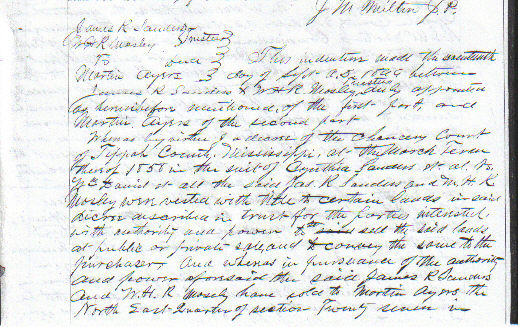 J M Miltin J.P.
James R Sanders
W.H.R. Mosley Trustees
To Deed
Martin Ayers
This indenture made the seventeenth
day of Sept A.D. 1866 between
James R Sanders & W.H.R. Mosley Trustees duly appointed
as hereinbefore mentioned, of the first part, and
Martin Ayers of the second part
Whereas by virtue of a decree of the Chancery Court
of Tippah County, Mississippi, at the March Term
thereof 1856 in the suit of Cynthia Sanders et al. vs.
Wm Daniel et all the said Jas. R Sanders and W.H.R
Mosley were vested with title to certain lands in said
decree described in trust for the parties interested
with authority and power to sell the said lands
at public or private sale, and to convey the same to the
purchaser. And whereas in pursuance of the authority
and power aforesaid the said James R Sanders
and W.H.R Mosely have sold to Martin Ayers the
North East Quarter of section Twenty seven in